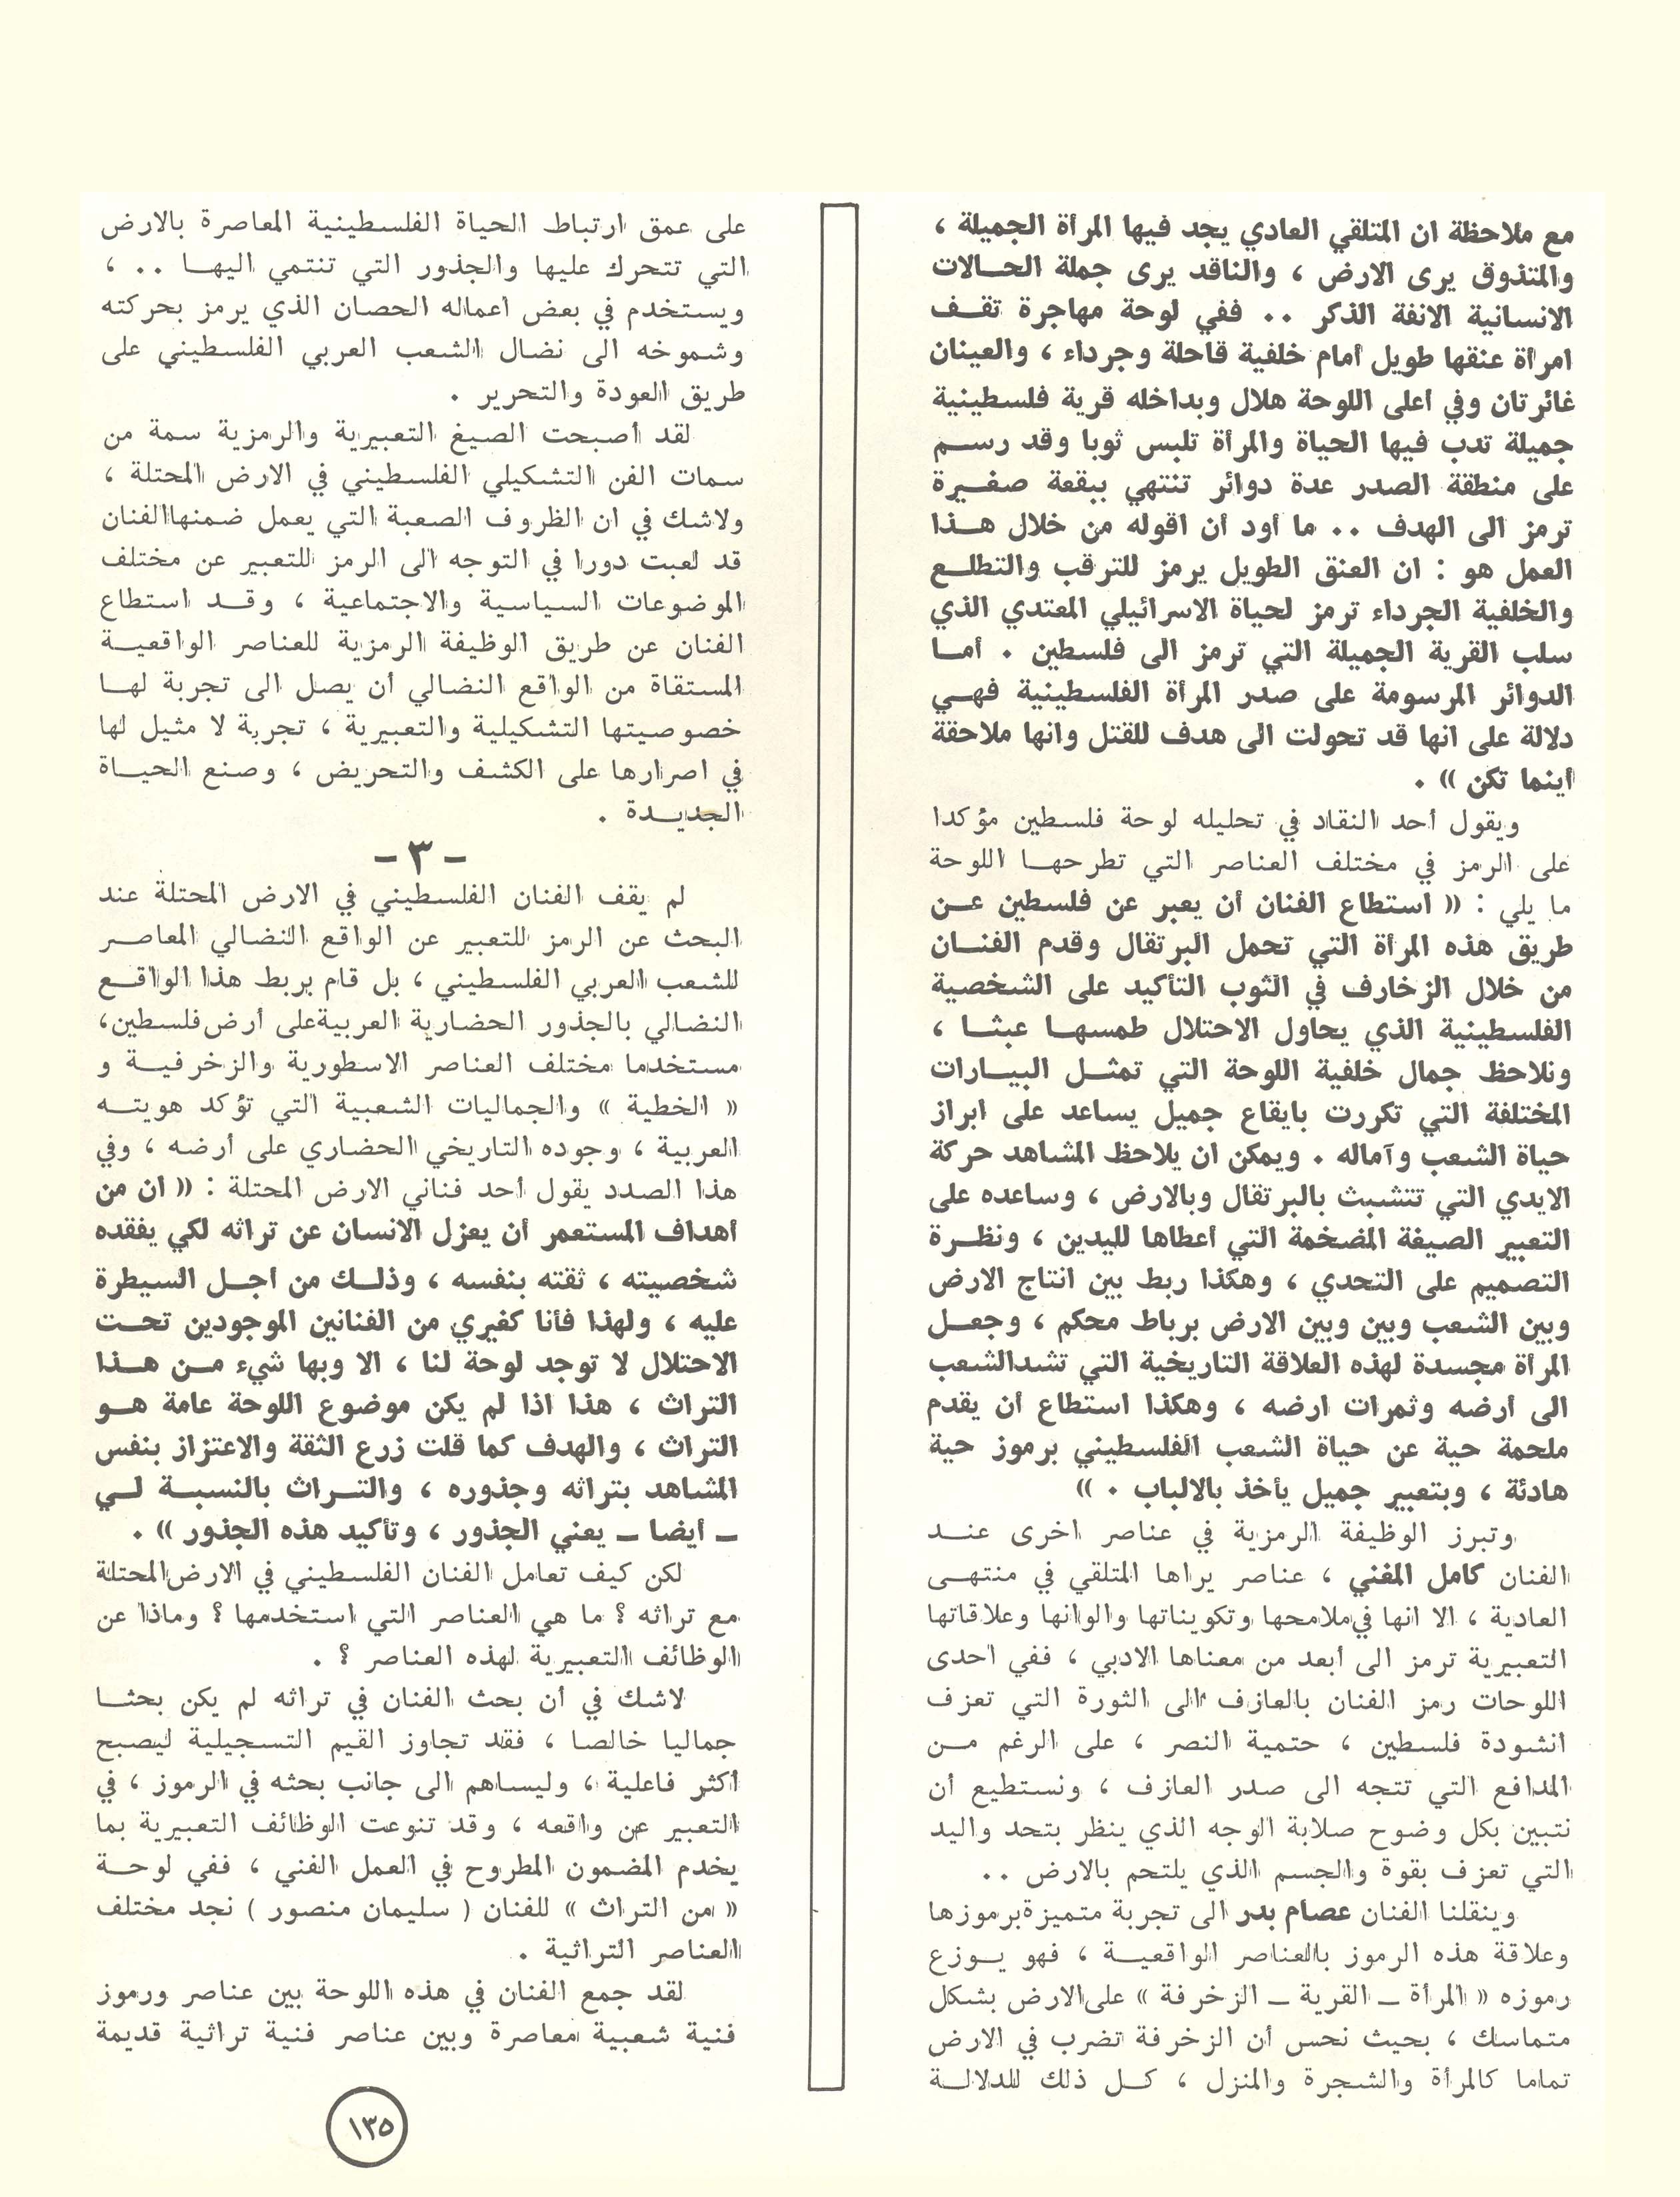 مع ملاحظة ان المتلقي العادي يجد فيها المرأة الجميلة ،
والمتذوق يرى الارض ، والناقد يرى جملة الحـالات
الانسانية الانفة الذكر .. ففي لوحة مهاجرة تقـف
امرأة عنقها طويل أمام خلفية قاحلة وجرداء ، والعينان
غائرتان وفي أعلى اللوحة هلال وبداخله قرية فلسطينية
جميلة تدب فيها الحياة والمرأة تلبس ثوبا وقد رسـم
على منطقة الصدر عدة دوائر تنتهي ببقعة صغـيرة
ترمز الى الهدف .. ما أود أن اقوله من خلال هـذا
العمل هو : ان العنق الطويل يرمز للترقب والتطلـع
والخلفية الجرداء ترمز لحياة الاسرائيلي المعتدي الذي
سلب القرية الجميلة التي ترمز الى فلسطين . أمـا
الدوائر المرسومة على صدر المرأة الفلسطينية فهـي
دلالة على انها قد تحولت الى هدف للقتل وانها ملاحقة
أينما تكن » .
ويقول أحد النقاد في تحليله لوحة فلسطين مؤكدا
على الرمز في مختلف العناصر التي تطرحهـا اللوحة
ما يلي : « استطاع الفنان أن يعبر عن فلسطين عـن
طريق هذه المرأة التي تحمل البرتقال وقدم الفنـان
من خلال الزخارف في الثوب التأكيد على الشخصية
الفلسطينية الذي يحاول الاحتلال طمسهـا عبثـا ،
ونلاحظ جمال خلفية اللوحة التي تمثـل البيـارات
المختلفة التي تكررت بايقاع جميل يساعد على ابراز
حياة الشعب وآماله . ويمكن ان يلاحظ المشاهد حركة
الايدي التي تتشبث بالبرتقال وبالارض ، وساعده على
التعبير الصيغة المضخمة التي أعطاها لليدين ، ونظـرة
التصميم على التحدي ، وهكذا ربط بين انتاج الارض
وبين الشعب وبين وبين الارض برباط محكم ، وجعـل
المرأة مجسدة لهذه العلاقة التاريخية التي تشدالشعب
الى أرضه وثمرات ارضه ، وهكذا استطاع أن يقدم
ملحمة حية عن حياة الشعب الفلسطيني برموز حية
هادئة ، وبتعبير جميل يأخذ بالالباب . »
وتبرز الوظيفة الرمزية في عناصر اخرى عنـد
الفنان كامل المغني ، عناصر يراها المتلقي في منتهـى
العادية ، الا انها في ملامحها وتكويناتها والوانها وعلاقاتها
التعبيرية ترمز الى أبعد من معناها الادبي ، ففي احدى
اللوحات رمز الفنان بالعازف الى الثورة التي تعزف
انشودة فلسطين ، حتمية النصر ، على الرغم مـن
المدافع التي تتجه الى صدر العازف ، ونستطيع أن
نتبين بكل وضوح صلابة الوجه الذي ينظر بتحد واليد
التي تعزف بقوة والجسم الذي يلتحم بالارض ..
وينقلنا الفنان عصام بدر الى تجربة متميزة برموزها
وعلاقة هذه الرموز بالعناصر الواقعيـة ، فهو يـوزع
رموزه « المرأة ـ القرية ـ الزخرفة » على الارض بشكل
متماسك ، بحيث نحس أن الزخرفة تضرب في الارض
تماما كالمرأة والشجرة والمنزل ، كـل ذلك للدلالـة
على عمق ارتباط الحياة الفلسطينية المعاصرة بالارض
التي تتحرك عليها والجذور التي تنتمي اليهـا .. ،
ويستخدم في بعض أعماله الحصان الذي يرمز بحركته
وشموخه الى نضال الشعب العربي الفلسطيني على
طريق العودة والتحرير .
لقد أصبحت الصيغ التعبيرية والرمزية سمة من
سمات الفن التشكيلي الفلسطيني في الارض المحتلة ،
ولاشك في ان الظروف الصعبة التي يعمل ضمنها الفنان
قد لعبت دورا في التوجه الى الرمز للتعبير عن مختلف
الموضوعات السياسية والاجتماعية ، وقـد استطاع
الفنان عن طريق الوظيفة الرمزية للعناصر الواقعيـة
المستقاة من الواقع النضالي أن يصل الى تجربة لهـا
خصوصيتها التشكيلية والتعبيرية ، تجربة لا مثيل لها
في اصرارها على الكشف والتحريض ، وصنع الحيـاة
الجديـدة .
ـ ٣ ـ
لم يقف الفنان الفلسطيني في الارض المحتلة عند
البحث عن الرمز للتعبير عن الواقع النضالي المعاصـر
للشعب العربي الفلسطيني ، بل قام بربط هذا الواقـع
النضالي بالجذور الحضارية العربية على أرض فلسطين،
مستخدما مختلف العناصر الاسطورية والزخرفيـة و
« الخطية » والجماليات الشعبية التي تؤكد هويتـه
العربية ، وجوده التاريخي الحضاري على أرضه ، وفي
هذا الصدد يقول أحد فناني الارض المحتلة : « ان من
أهداف المستعمر أن يعزل الانسان عن تراثه لكي يفقده
شخصيته ، ثقته بنفسه ، وذلـك من اجـل السيطرة
عليه ، ولهذا فأنا كغيري من الفنانين الموجودين تحـت
الاحتلال لا توجد لوحة لنا ، الا وبها شيء مـن هـذا
التراث ، هذا اذا لم يكن موضوع اللوحة عامة هـو
التراث ، والهدف كما قلت زرع الثقة والاعتزاز بنفس
المشاهد بتراثه وجذوره ، والتـراث بالنسبـة لـي
ـ أيضا ـ يعني الجذور ، وتأكيد هذه الجذور » .
لكن كيف تعامل الفنان الفلسطيني في الارض المحتلة
مع تراثه ؟ ما هي العناصر التي استخدمها ؟ وماذا عن
الوظائف التعبيرية لهذه العناصر ؟ .
لاشك في أن بحث الفنان في تراثه لم يكن بحثـا
جماليا خالصا ، فقد تجاوز القيم التسجيلية ليصبح
أكثر فاعلية ، وليساهم الى جانب بحثه في الرموز ، في
التعبير عن واقعه ، وقد تنوعت الوظائف التعبيرية بما
يخدم المضمون المطروح في العمل الفني ، ففي لوحـة
« من التراث » للفنان ( سليمان منصور ) نجد مختلف
العناصر التراثية .
لقد جمع الفنان في هذه اللوحة بين عناصر ورموز
فنية شعبية معاصرة وبين عناصر فنية تراثية قديمة
١٣٥